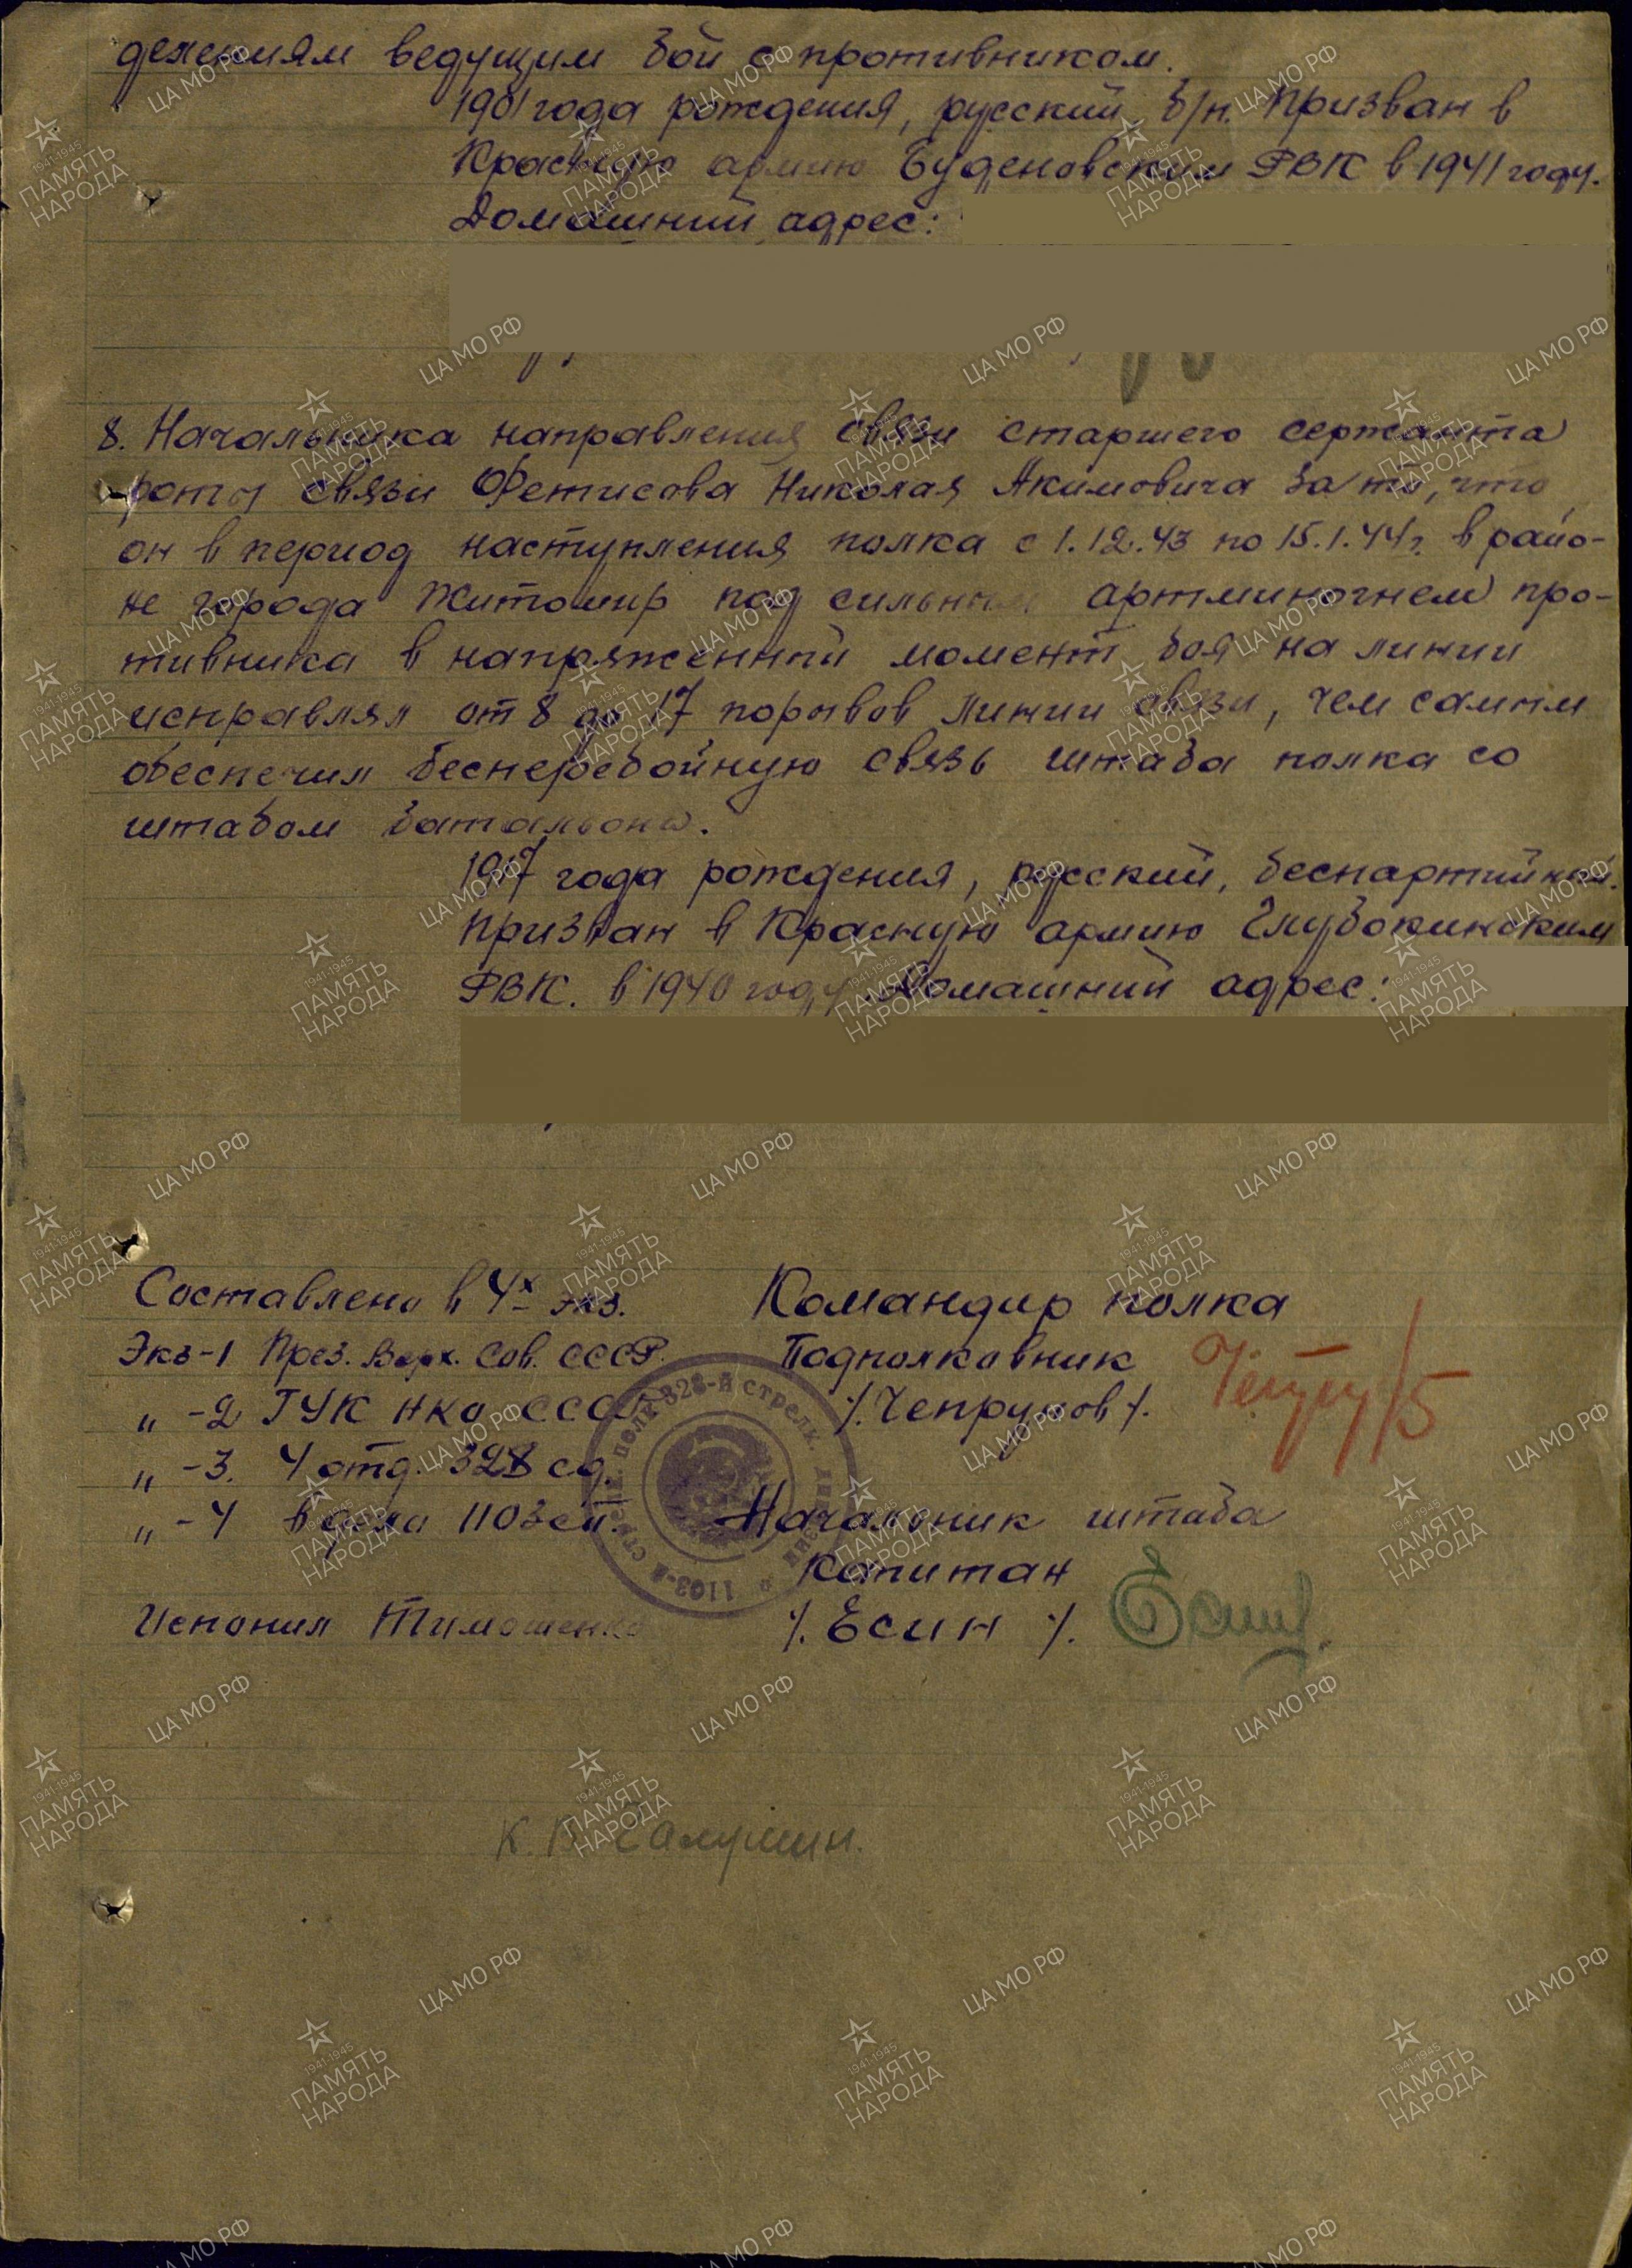 делениям ведущим бой с противником.
1901 года рождения, русский, б/п. Призван в
Красную армию Буденовским РВК в 1941 году.
Домашний адрес:
8. Начальника направления связи старшего сержанта
роты связи Фетисова Николая Акимовича за то, что
он в период наступления полка с 1.12.43 по 15.1.44г. в райо-
не города Житомир под сильным артминогнем про-
тивника в напряженный момент боя на линии
исправлял от 8 до 17 порывов линии связи, чем самым
обеспечил бесперебойную связь штаба полка со
штабом батальона.
1917 года рождения, русский, беспартийный.
Призван в Красную армию Глубокинским
РВК. в 1940 году. Домашний адрес:
Составлено в 4х экз. Командир полка
Экз-1 През. Верх. Сов. СССР. Подполковник
„ -2 ГУК НКО СССР /. Чепрунов /.
„ -3. 4 отд. 328 сд.
„ -4 в дела 1103 сп. Начальник штаба
Капитан
Исполнил Тимошенко /. Есин /. Есин
1103-й стрелк. полк 328-й стрелк. дивизии
К.В. Галушин.
ЦА МО РФ
1941-1945
ПАМЯТЬ
НАРОДА